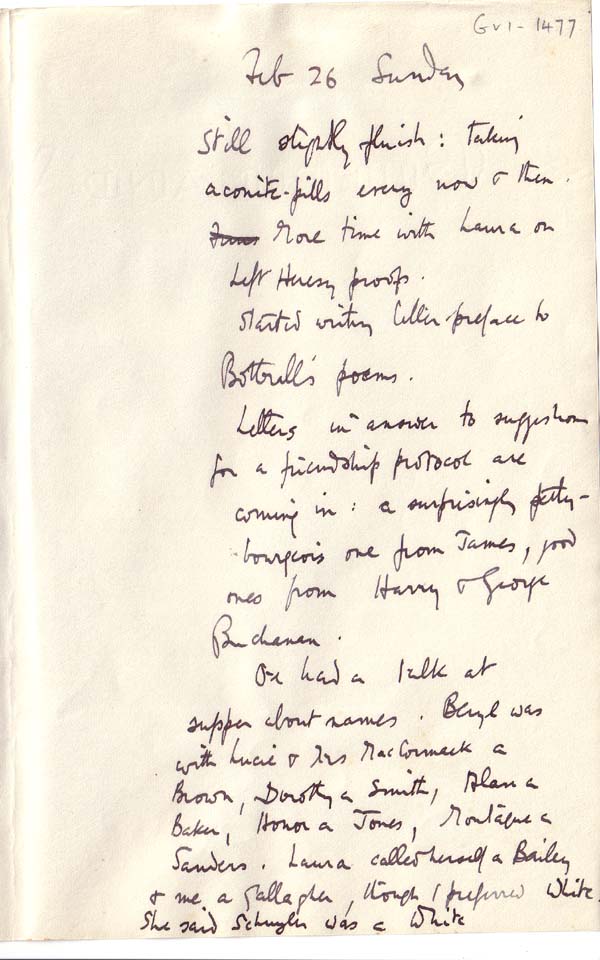 Gv1-1477
Feb 26 Sunday
Still slightly fluish: taking
aconite-pills every now & then.
More time with Laura on
Left Heresy proofs.
Started writing letter-preface to
Bottrall's poems.
Letters in answer to suggestions
for a friendship protocol are
coming in: a surprisingly petty-
bourgeois one from James, good
ones from Harry & George
Buchanan.
We had a talk at
supper about names. Beryl was
with Lucie & Mrs MacCormack a
Brown, Dorothy a Smith, Alan a
Baker, Honor a Jones, Montague a
Sanders. Laura called herself a Bailey
& me a Gallagher, though I preferred White.
She said Schuyler was a White